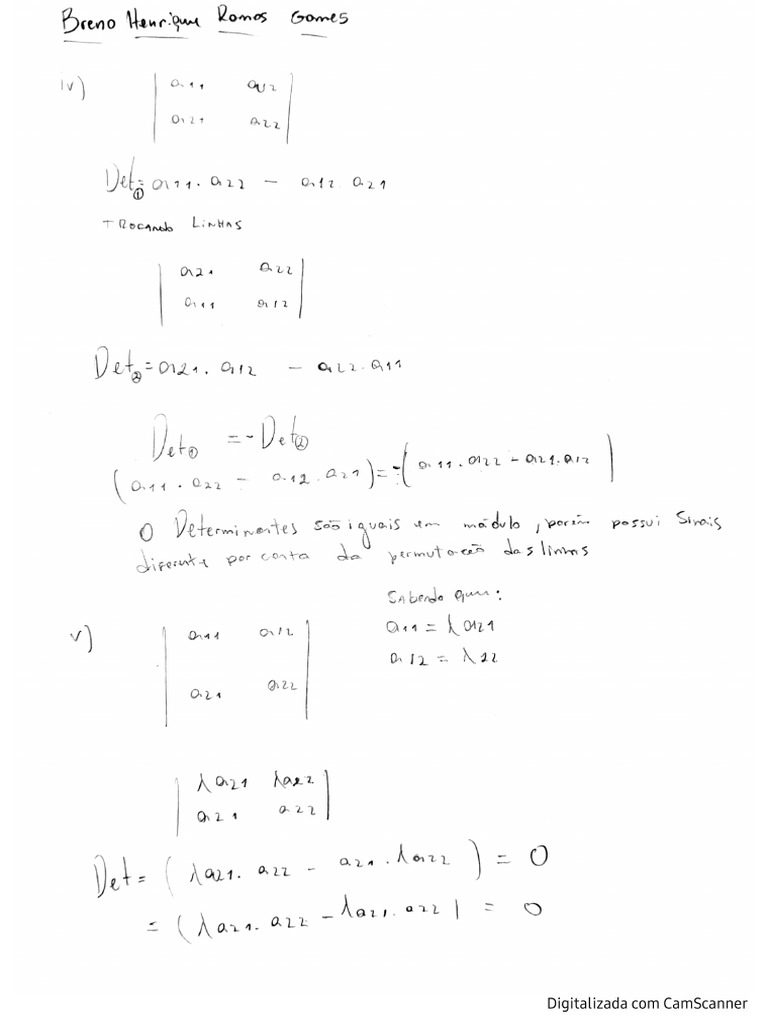 Breno Henrique Ramos Gomes
iv)
| a11 a12 |
| a21 a22 |
Det① = a11 . a22 - a12 . a21
TROCANDO LINHAS
| a21 a22 |
| a11 a12 |
Det② = a21 . a12 - a22 . a11
Det① = - Det②
(a11 . a22 - a12 . a21) = -(a11 . a22 - a21 . a12)
O Determinantes são iguais em módulo, porém possui Sinais
diferente por conta da permutação das linhas
Sabendo que:
v) | a11 a12 | a11 = λ a21
a12 = λ 22
| a21 a22 |
| λa21 λa22 |
| a21 a22 |
Det = (λa21 . a22 - a21 . λa22) = 0
= (λa21 . a22 - λa21 . a22) = 0
Digitalizada com CamScanner